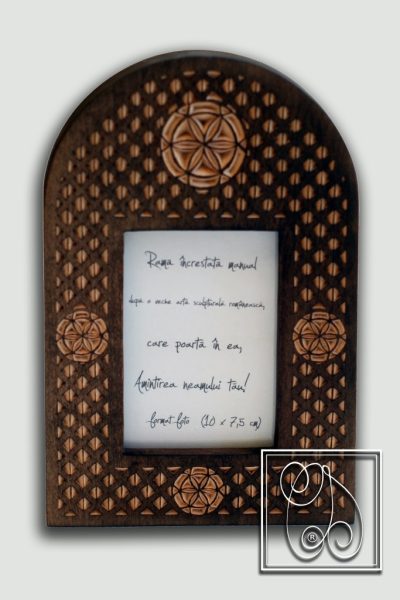 Rama încrestata manual
după o veche artă sculpturală românească,
care poartă în ea,
Amintirea neamului tău!
format foto (10 x 7,5 cm)
®